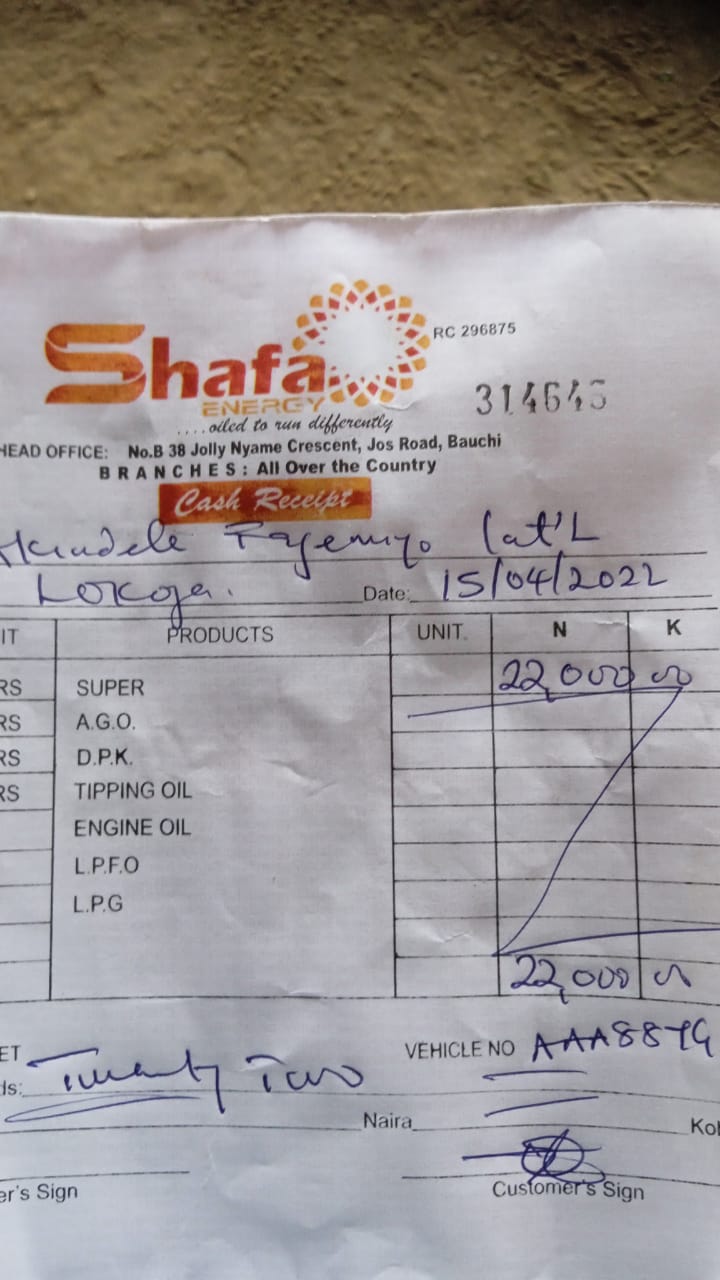 Shafa
ENERGY
RC 296875
....oiled to run differently
314645
HEAD OFFICE: No.B 38 Jolly Nyame Crescent, Jos Road, Bauchi
BRANCHES: All Over the Country
Cash Receipt
Int'L
Lokoja. Date: 15/04/2022
IT PRODUCTS UNIT. N K
RS SUPER 22,000 00
RS A.G.O.
RS D.P.K.
RS TIPPING OIL
ENGINE OIL
L.P.F.O
L.P.G
22,000 00
ET VEHICLE NO
ds: Twenty Two
Naira Kob
er's Sign Customer's Sign